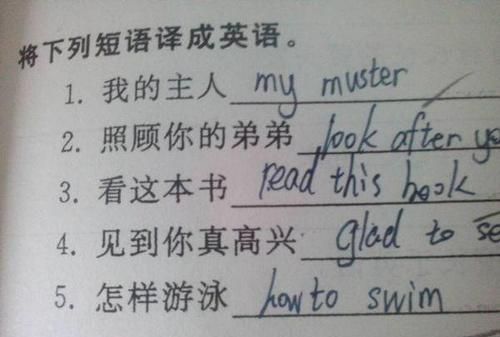 将下列短语译成英语。
1. 我的主人 my muster
2. 照顾你的弟弟 look after
3. 看这本书 read this book
4. 见到你真高兴 glad to
5. 怎样游泳 how to swim